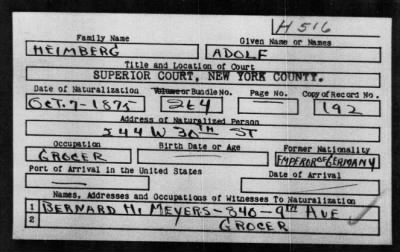 H 516
Family Name Given Name or Names
HEIMBERG ADOLF
Title and Location of Court
SUPERIOR COURT, NEW YORK COUNTY.
Date of Naturalization Volume or Bundle No. Page No. Copy of Record No.
OCT. 7-1875 264 — 192
Address of Naturalized Person
344 W 30TH ST
Occupation Birth Date or Age Former Nationality
GROCER — EMPEROR OF GERMANY
Port of Arrival in the United States Date of Arrival
— —
Names, Addresses and Occupations of Witnesses To Naturalization
1 BERNARD H. MEYERS-840-9TH AVE
2 GROCER